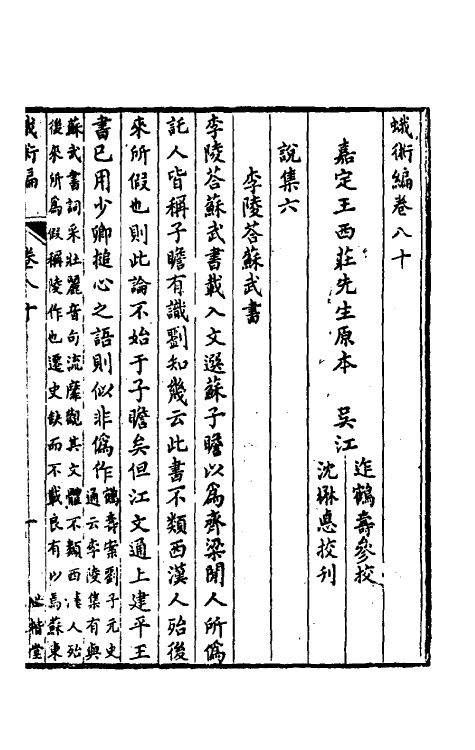 蛾術編卷八十
嘉定王西莊先生原本　吳江
迮鶴壽參挍
沈楙悳挍刊
說集六
李陵荅蘇武書
李陵荅蘇武書載入文選蘇子瞻以爲齊梁閒人所僞
託人皆稱子瞻有識劉知幾云此書不類西漢人殆後
來所假也則此論不始于子瞻矣但江文通上建平王
書已用少卿搥心之語則似非僞作
鶴壽案劉子元史
通云李陵集有與
蘇武書詞采壯麗音句流靡觀其文體不類西漢人殆
後來所爲假稱陵作也遷史缺而不載良有以焉蘇東
蛾術編
卷八十
一
世楷堂